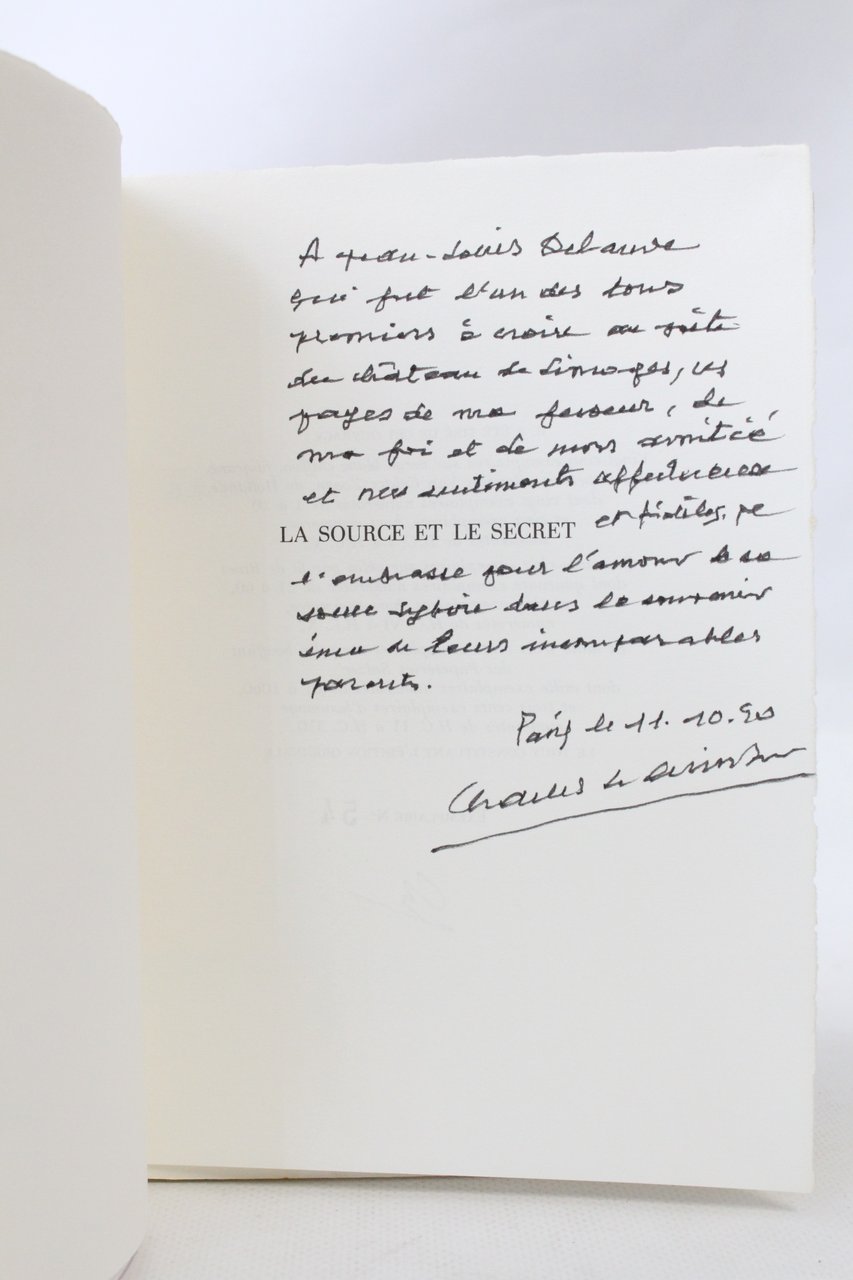 A Jean-Louis Delaunre
qui fut l'un des tous
premiers à croire au poète
du château de Limoges, ces
pages de ma ferveur, de
ma foi et de mon amitié
et mes sentiments affectueux
et fidèles. Je
LA SOURCE ET LE SECRET
l'embrasse pour l'amour de sa
soeur Sylvie dans le souvenir
ému de leurs incomparables
parents.
Paris le 11. 10. 90
Charles Le Quintrec
EXEMPLAIRE N° 54